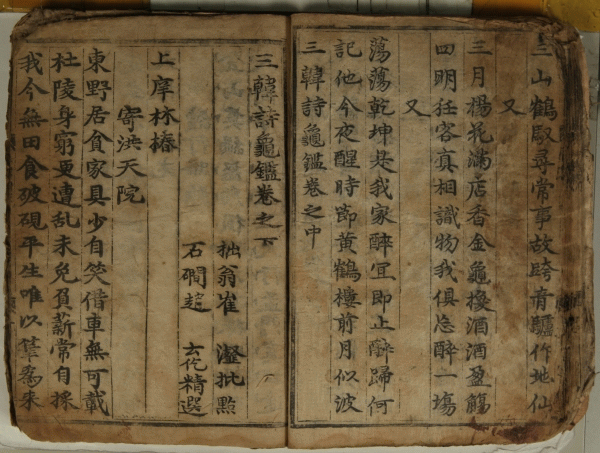 三山鶴馭尋常事故跨青驢作地仙
又
三月楊花滿店香金龜換酒酒盈觴
四明狂客真相識物我俱忘醉一場
又
蕩蕩乾坤是我家醉宜即止醉歸何
記他今夜醒時節黃鶴樓前月似波
三韓詩龜鑑卷之中
三韓詩龜鑑卷之下
拙翁崔 瀣批點
石磵趙 云仡精選
上庠林椿
寄洪天院
東野居貧家具少自笑借車無可載
杜陵身窮更遭乱未免負薪常自採
我今無田食破硯平生唯以筆為耒